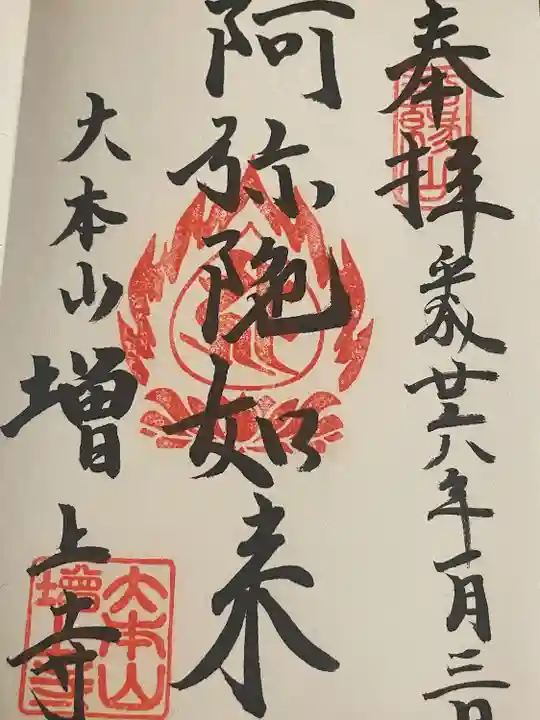 奉拝
平成廿八年一月三日
阿弥陀如来
大本山 増上寺
大本山
増上寺